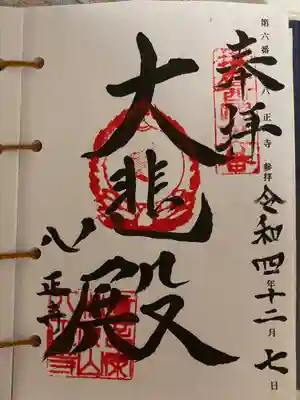 第六番 八正寺 参拝
奉拝
令和四年十二月七日
大悲殿
八正寺